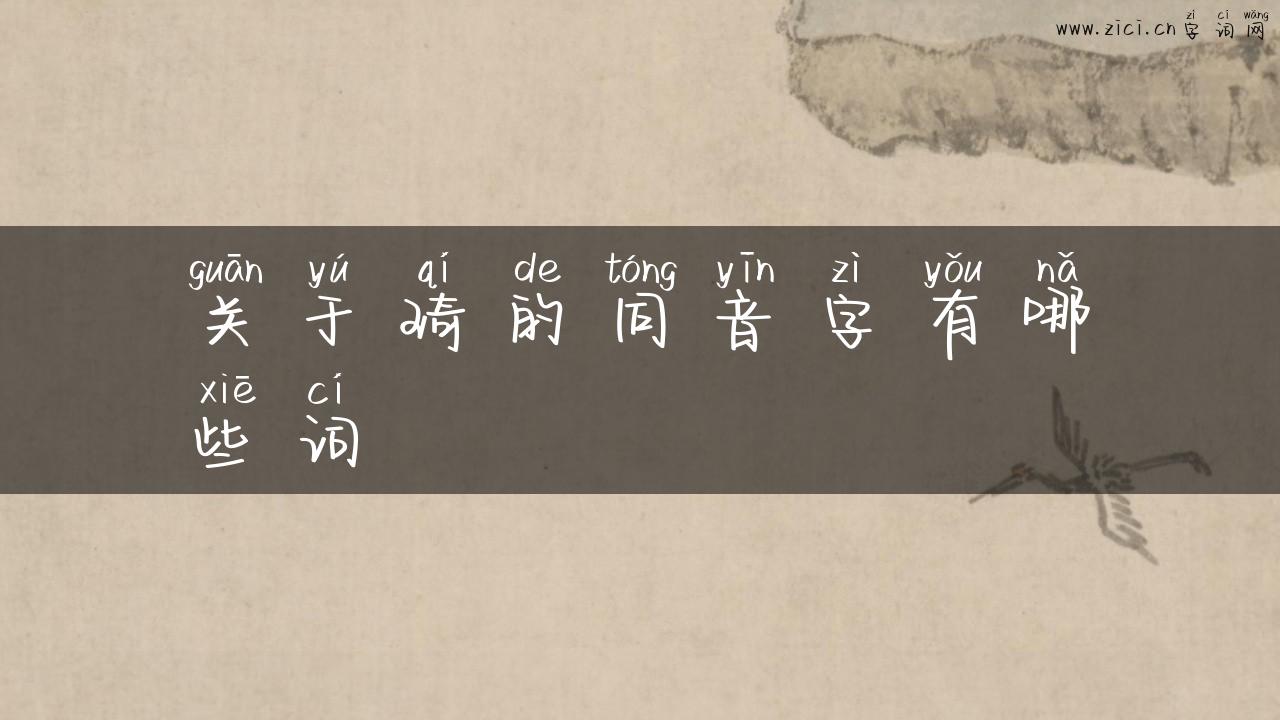 www.zici.cn 字词网
zì cí wǎng
guān yú qí de tóng yīn zì yǒu nǎ
关于骑的同音字有哪
xiē cí
些词